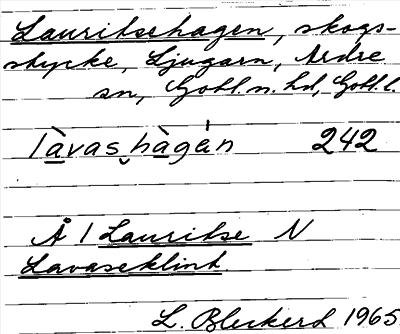 Lauritsehagen, skogs-
stycke, Ljugarn, Ardre
sn, Gotl. n. hd, Gotl. l.
làvas hàgȧ́n 242
Å 1 Lauritse N
Lavaseklint
L. Bleckerd 1965